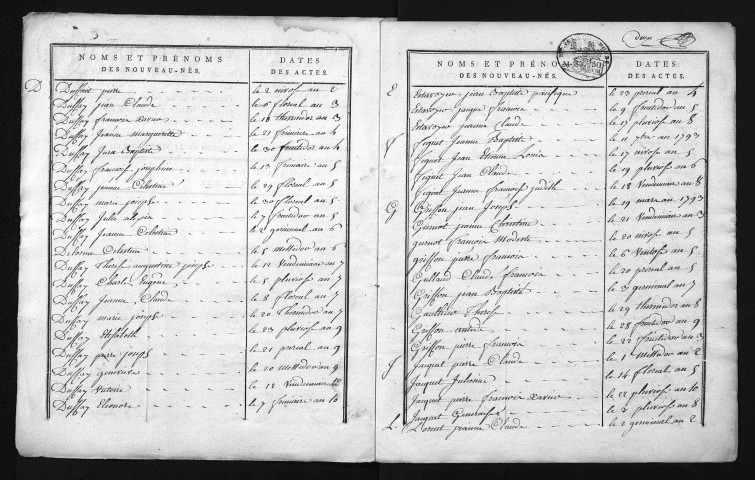 NOMS ET PRÉNOMS
DES NOUVEAU-NÉS.
DATES
DES ACTES.
D Duffay pierre le 2 nivose an 2
Duffay jean Claude le 6 floreal an 3
Duffay françois xavier le 18 thermidor an 3
Duffay Jeanne marguerite le 21 frimaire an 4
Duffay Jean Baptiste le 30 fructidor an 4
Duffay françois josephine le 13 frimaire an 5
Duffay jeanne Celestine le 29 floreal an 5
Duffay marie joseph le 30 floreal an 5
Duffay Julie alexis le 7 fructidor an 5
Duffay Jeanne Celestine le 2 germinal an 6
Delorme Celestine le 5 messidor an 6
Duffay Therese augustine joseph le 12 Vendemiaire an 7
Duffay Charle Eugene le 5 pluviose an 7
Duffay Jeanne Claude le 8 floreal an 7
Duffay marie joseph le 20 Thermidor an 7
Duffay Elisabeth le 23 pluviose an 9
Duffay pierre joseph le 21 prereal an 9
Duffay genevieve le 20 messidor an 9
Duffay Victoire le 12 Vendemiaire an 10
Duffay Eleonore le 7 frimaire an 10
deux
NOMS ET PRÉNOMS
DES NOUVEAU-NÉS.
DATES
DES ACTES.
E Estavoyer jean Baptiste pacifique le 23 prereal an 4
Estavoyer jacque francois le 9 fructidor an 5
Estavoyer jeanne Claude le 17 pluviose an 8
F figuet Jeanne Baptiste le 11 xbre an 1793
figuet Jean Etienne Louis le 17 nivose an 5
figuet Jean Claude le 19 pluviose an 6
figuet Jeanne françoise judith le 18 Vendemiaire an 8
G Grisson jean Joseph le 19 mars an 1793
Guenot jeanne Clementine le 21 Vendemiaire an 3
guenot françois Modeste le 20 nivose an 5
grisson pierre francois le 6 Ventose an 5
Guilland Claude francois le 20 prereal an 5
Grisson jean Baptiste le 3 germinal an 7
Gauthier Therese le 29 thermidor an 8
Grisson antoine le 28 fructidor an 9
Grisson pierre francois le 22 fructidor an 3
J Jacquet pierre Claude le 1 Messidor an 2
Jacquet Julienne le 14 floreal an 5
Jacquet pierre francois Xavier le 22 pluviose an 10
Jacquet Genevieve le 3 pluviose an 8
L. Lornet jeanne Claude le 2 germinal an 2